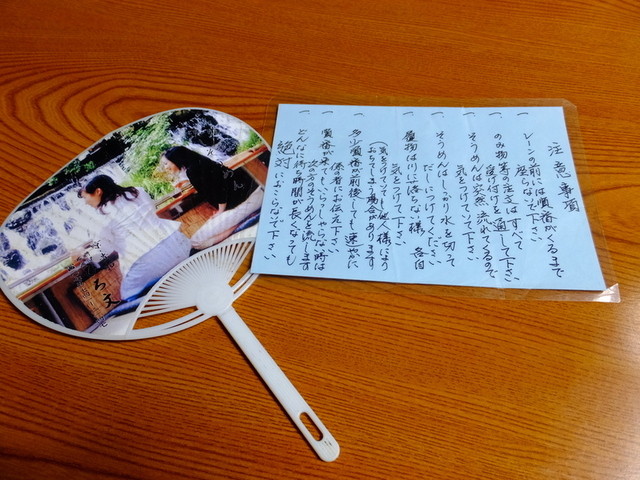 注意事項
一 レーンの前には順番がくるまで
座らないで下さい
一 のみ物等の注文はすべて
受け付けを通して下さい
一 そうめんは突然流れてくるので
気をつけて下さい
一 そうめんはしっかり水を切って
だしにつけてください
一 履物は川に落ちない様各自
気をつけて下さい
(気をつけていても他人様により
おちてしまう場合があります)
一 多少順番が前後しても速やかに
係の者にお伝え下さい
一 順番が来てもいらっしゃらない時は
次の方のそうめんを流します
一 どんなに待ち時間が長くなっても
絶対におこらないで下さい
ろ文